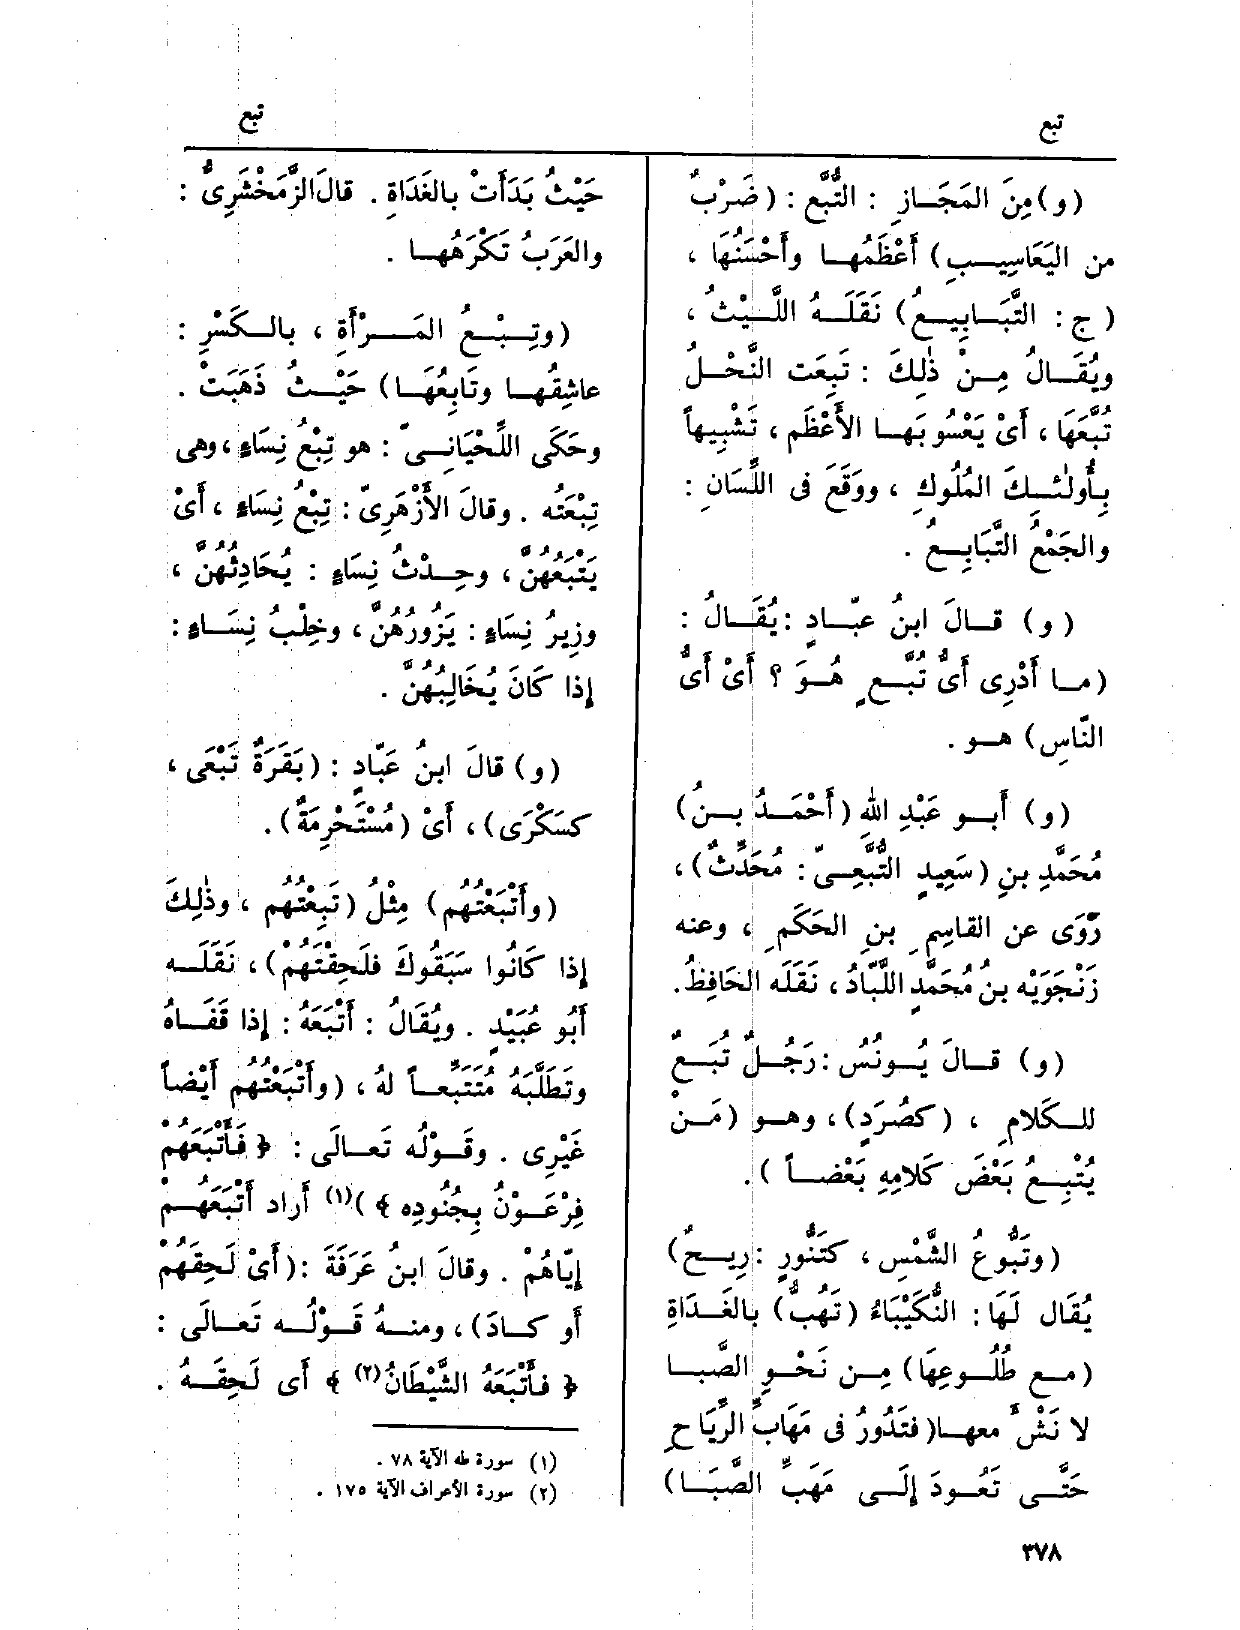 تبع
تبع
(و) مِنَ المَجَازِ : التُّبَّع : (ضَرْبٌ
من اليَعَاسِيبِ) أَعْظَمُها وأَحْسَنُهَا ،
(ج : التَّبَابِيعُ) نَقَلَهُ اللَّيْثُ ،
ويُقَالُ مِنْ ذٰلِكَ : تَبِعَت النَّحْلُ
تُبَّعَهَا ، أَىْ يَعْسُوبَها الأَعْظَم ، تَشْبِيهاً
بِأُولٰئِكَ المُلُوكِ ، ووَقَعَ فى اللِّسَانِ :
والجَمْعُ التَّبَابِعُ .
(و) قالَ ابنُ عبّادٍ : يُقَالُ :
(ما أَدْرِى أَىُّ تُبَّعٍ هُوَ ؟ أَىْ أَىُّ
النّاسِ) هو .
(و) أَبو عَبْدِ اللهِ (أَحْمَدُ بنُ)
مُحَمَّدِ بنِ (سَعِيدٍ التُّبَّعِىّ : مُحَدِّثٌ) ،
رَوَى عن القاسِمِ بنِ الحَكَمِ ، وعنه
زَنْجَوَيْه بنُ مُحَمَّدٍ اللَّبّادُ ، نَقَلَه الحَافِظُ .
(و) قالَ يُونُس : رَجُلٌ تُبَعٌ
للكَلامِ ، (كصُرَدٍ) ، وهو (مَنْ
يُتْبِعُ بَعْضَ كَلامِهِ بَعْضاً ) .
(وتَبُّوعُ الشَّمْسِ ، كتَنُّورٍ : رِيحٌ)
يُقَال لَهَا : النُّكَيْبَاءُ (تَهُبُّ) بالغَدَاةِ
(مع طُلُوعِهَا) مِن نَحْوِ الصَّبا
لا نَشْءَ معها (فتَدُورُ فى مَهَابِّ الرِّيَاحِ
حَتَّى تَعُودَ إِلَى مَهَبِّ الصَّبَا)
حَيْثُ بَدَأَتْ بالغَدَاةِ . قالَ الزَّمَخْشَرِىُّ :
والعَرَبُ تَكْرَهُها .
(وتِبْعُ المَرْأَةِ ، بالكَسْرِ :
عاشِقُها وتَابِعُهَا) حَيْثُ ذَهَبَتْ .
وحَكَى اللِّحْيَانِىّ : هو تِبْعُ نِسَاءٍ ، وهى
تِبْعَتُه . وقالَ الأَزْهَرِىّ : تِبْعُ نِسَاءٍ ، أَىْ
يَتْبَعُهُنَّ ، وحِدْثُ نِسَاءٍ : يُحَادِثُهُنَّ ،
وزِيرُ نِسَاءٍ : يَزُورُهُنَّ ، وخِلْبُ نِسَاءٍ :
إِذا كَانَ يُخَالِبُهُنَّ .
(و) قالَ ابنُ عَبّادٍ : (بَقَرَةٌ تَبْعَى ،
كسَكْرَى) ، أَىْ (مُسْتَحْرِمَةٌ) .
(وأَتْبَعْتُهُم) مِثْلُ (تَبِعْتُهُم ، وذٰلِكَ
إِذا كَانُوا سَبَقُوكَ فلَحِقْتَهُمْ) ، نَقَلَه
أَبُو عُبَيْدٍ . ويُقَالُ : أَتْبَعَهُ : إِذا قَفَاهُ
وتَطَلَّبَهُ مُتَتَبِّعاً لهُ ، (وأَتْبَعْتُهُم أَيْضاً
غَيْرِى . وقَوْلُه تَعالَى : ﴿ فَأَتْبَعَهُمْ
فِرْعَوْنُ بِجُنُودِه ﴾ )(١) أَراد أَتْبَعَهُمْ
إِيّاهُمْ . وقالَ ابنُ عَرَفَةَ : (أَىْ لَحِقَهُمْ
أَو كادَ) ، ومنهُ قَوْلُه تَعالَى :
﴿ فأَتْبَعَهُ الشَّيْطَانُ(٢) ﴾ أَى لَحِقَهُ .
(١) سورة طه الآية ٧٨ .
(٢) سورة الأعراف الآية ١٧٥ .
٣٧٨